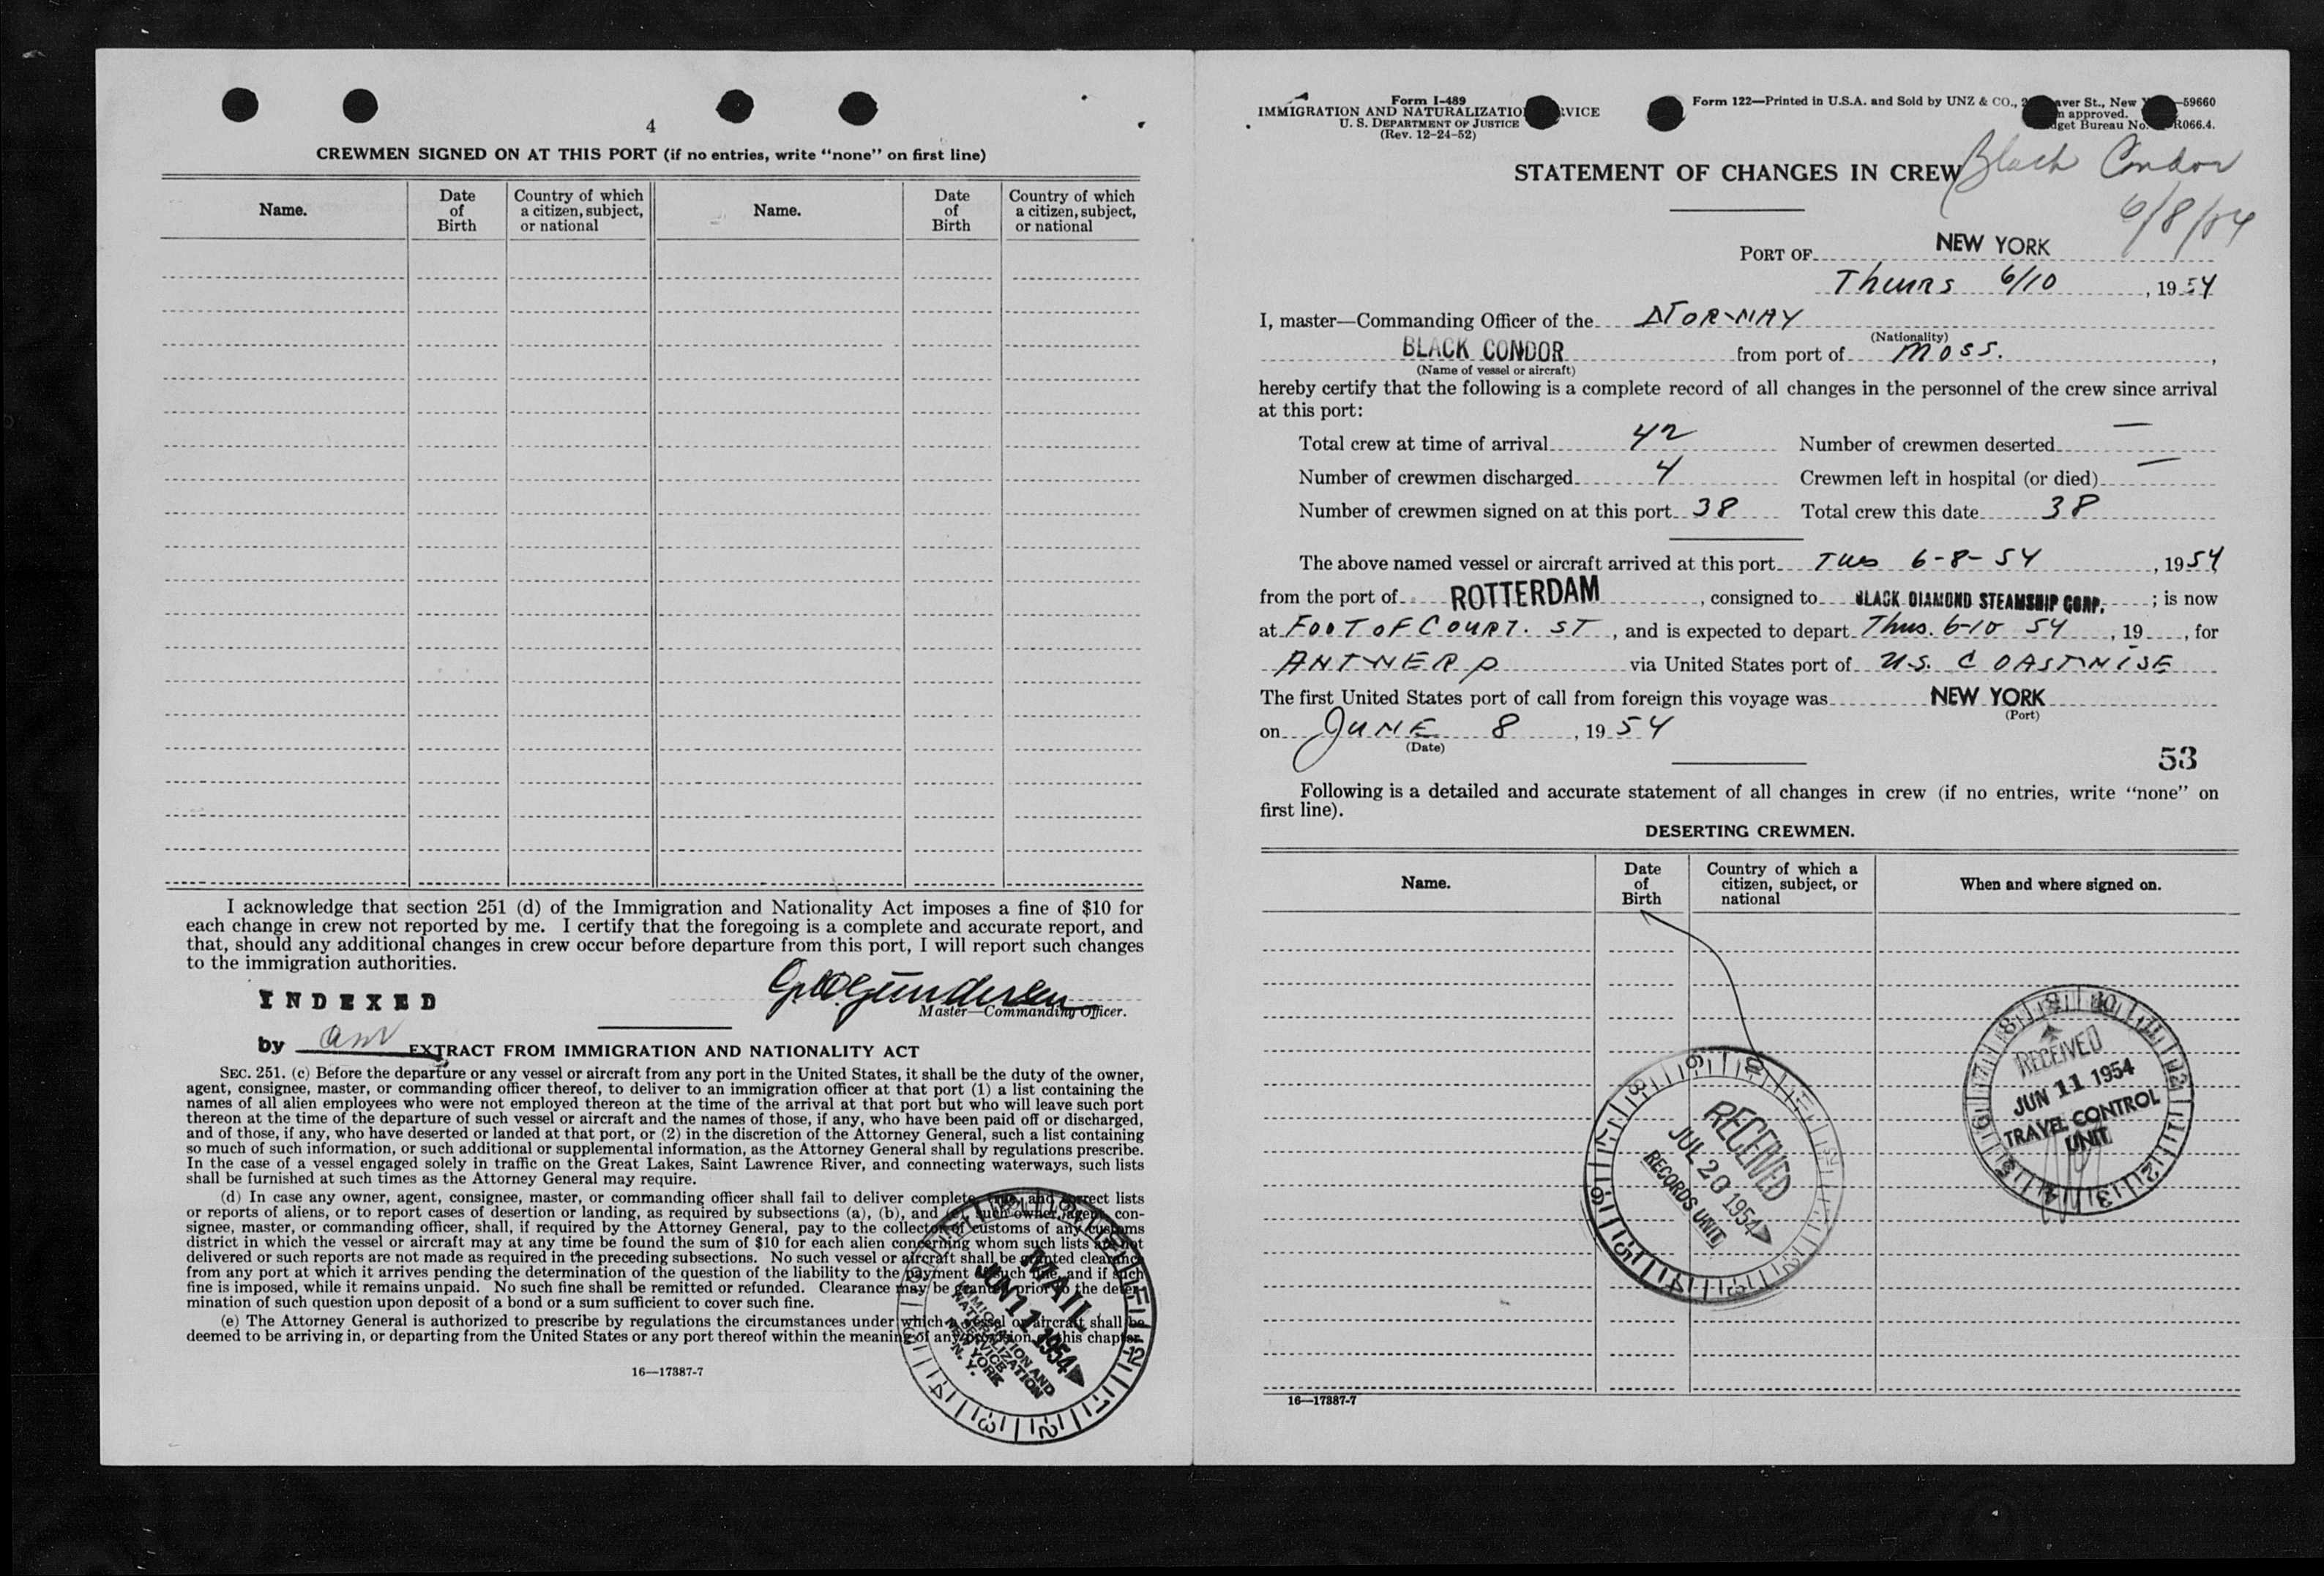 4
CREWMEN SIGNED ON AT THIS PORT (if no entries, write “none” on first line)
Name.
Date of Birth
Country of which a citizen, subject, or national
Name.
Date of Birth
Country of which a citizen, subject, or national
I acknowledge that section 251 (d) of the Immigration and Nationality Act imposes a fine of $10 for
each change in crew not reported by me. I certify that the foregoing is a complete and accurate report, and
that, should any additional changes in crew occur before departure from this port, I will report such changes
to the immigration authorities.
INDEXED
Gundersen
Master—Commanding Officer.
by
EXTRACT FROM IMMIGRATION AND NATIONALITY ACT
SEC. 251. (c) Before the departure or any vessel or aircraft from any port in the United States, it shall be the duty of the owner,
agent, consignee, master, or commanding officer thereof, to deliver to an immigration officer at that port (1) a list containing the
names of all alien employees who were not employed thereon at the time of the arrival at that port but who will leave such port
thereon at the time of the departure of such vessel or aircraft and the names of those, if any, who have been paid off or discharged,
and of those, if any, who have deserted or landed at that port, or (2) in the discretion of the Attorney General, such a list containing
so much of such information, or such additional or supplemental information, as the Attorney General shall by regulations prescribe.
In the case of a vessel engaged solely in traffic on the Great Lakes, Saint Lawrence River, and connecting waterways, such lists
shall be furnished at such times as the Attorney General may require.
(d) In case any owner, agent, consignee, master, or commanding officer shall fail to deliver complete, true, and correct lists
or reports of aliens, or to report cases of desertion or landing, as required by subsections (a), (b), and (c), such owner, agent, con-
signee, master, or commanding officer, shall, if required by the Attorney General, pay to the collector of customs of any customs
district in which the vessel or aircraft may at any time be found the sum of $10 for each alien concerning whom such lists are not
delivered or such reports are not made as required in the preceding subsections. No such vessel or aircraft shall be granted clearance
from any port at which it arrives pending the determination of the question of the liability to the payment of such fine, and if such
fine is imposed, while it remains unpaid. No such fine shall be remitted or refunded. Clearance may be granted prior to the deter-
mination of such question upon deposit of a bond or a sum sufficient to cover such fine.
(e) The Attorney General is authorized to prescribe by regulations the circumstances under which a vessel or aircraft shall be
deemed to be arriving in, or departing from the United States or any port thereof within the meaning of any provision of this chapter.
MAIL
JUN 11 1954
IMMIGRATION AND
NATURALIZATION
SERVICE
NEW YORK
N. Y.
16—17387-7
Form I-489
IMMIGRATION AND NATURALIZATIO VICE
U. S. DEPARTMENT OF JUSTICE
(Rev. 12-24-52)
Form 122—Printed in U.S.A. and Sold by UNZ & CO., 2 aver St., New Y —59660
n approved.
get Bureau No. R066.4.
STATEMENT OF CHANGES IN CREW
Black Condor
6/8/54
PORT OF NEW YORK
Thurs 6/10, 1954
I, master—Commanding Officer of the NORWAY
(Nationality)
BLACK CONDOR from port of MOSS.,
(Name of vessel or aircraft)
hereby certify that the following is a complete record of all changes in the personnel of the crew since arrival
at this port:
Total crew at time of arrival 42 Number of crewmen deserted —
Number of crewmen discharged 4 Crewmen left in hospital (or died) —
Number of crewmen signed on at this port 38 Total crew this date 38
The above named vessel or aircraft arrived at this port Tues 6-8-54, 1954
from the port of ROTTERDAM, consigned to BLACK DIAMOND STEAMSHIP CORP.; is now
at FOOT OF COURT. ST, and is expected to depart Thus. 6-10 54, 19, for
ANTWERP via United States port of U.S. COASTWISE
The first United States port of call from foreign this voyage was NEW YORK
(Port)
on JUNE 8, 1954
(Date)
53
Following is a detailed and accurate statement of all changes in crew (if no entries, write “none” on
first line).
DESERTING CREWMEN.
Name.
Date of Birth
Country of which a citizen, subject, or national
When and where signed on.
RECEIVED
JUN 11 1954
TRAVEL CONTROL
UNIT
RECEIVED
JUL 20 1954
RECORDS UNIT
16—17387-7